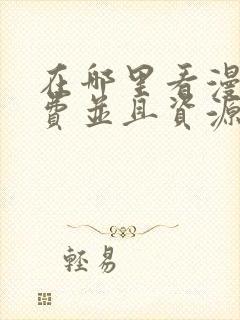 在哪里看漫
費並且資源
輕易